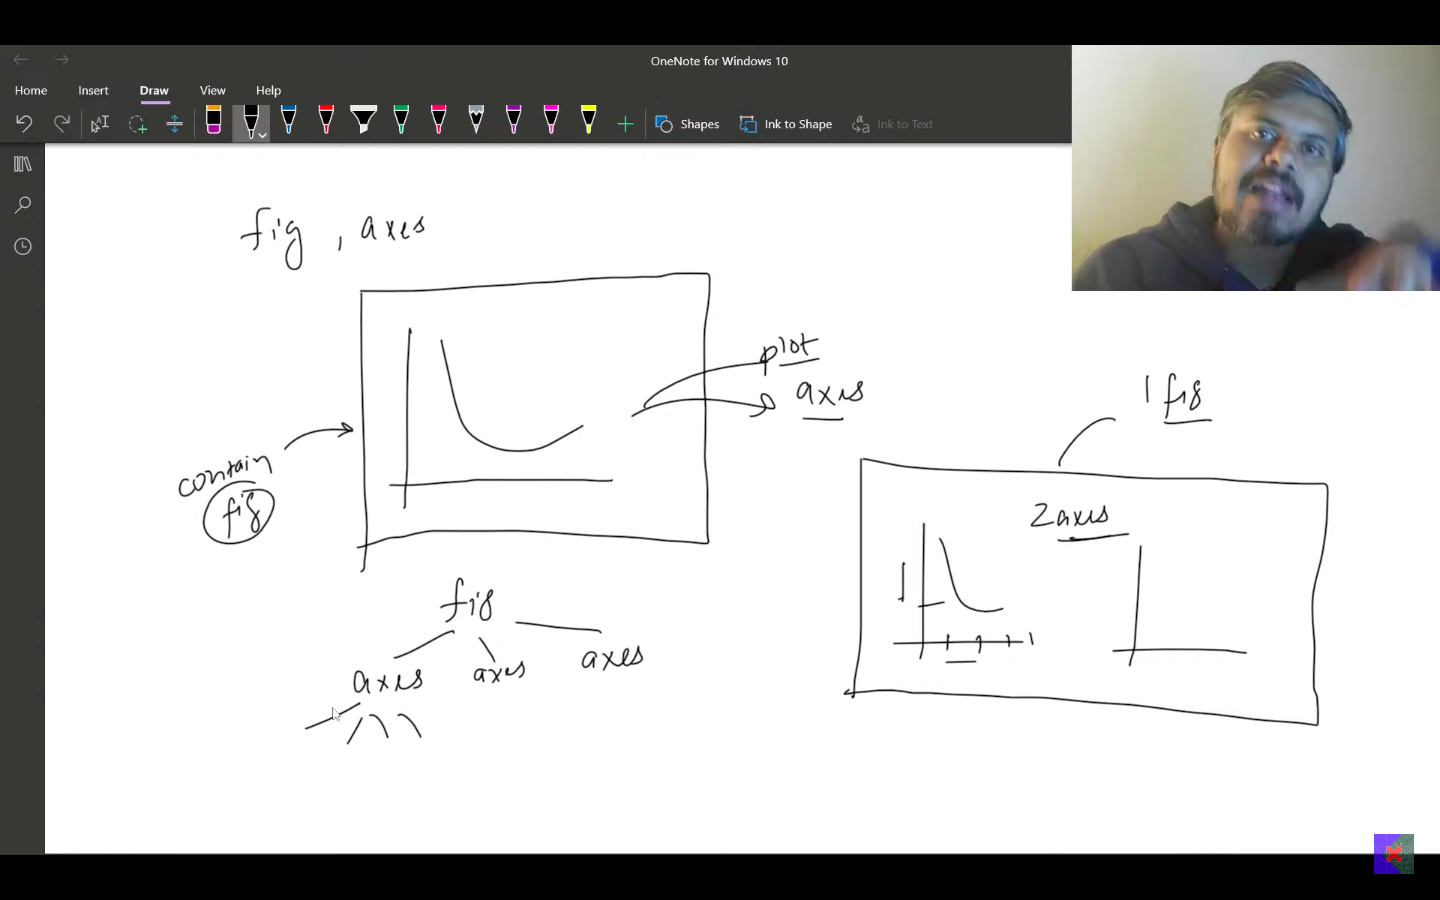 OneNote for Windows 10
Home Insert Draw View Help
Shapes Ink to Shape Ink to Text
fig, axes
plot
axes
contain
fig
1 fig
2 axes
fig
axes axes axes